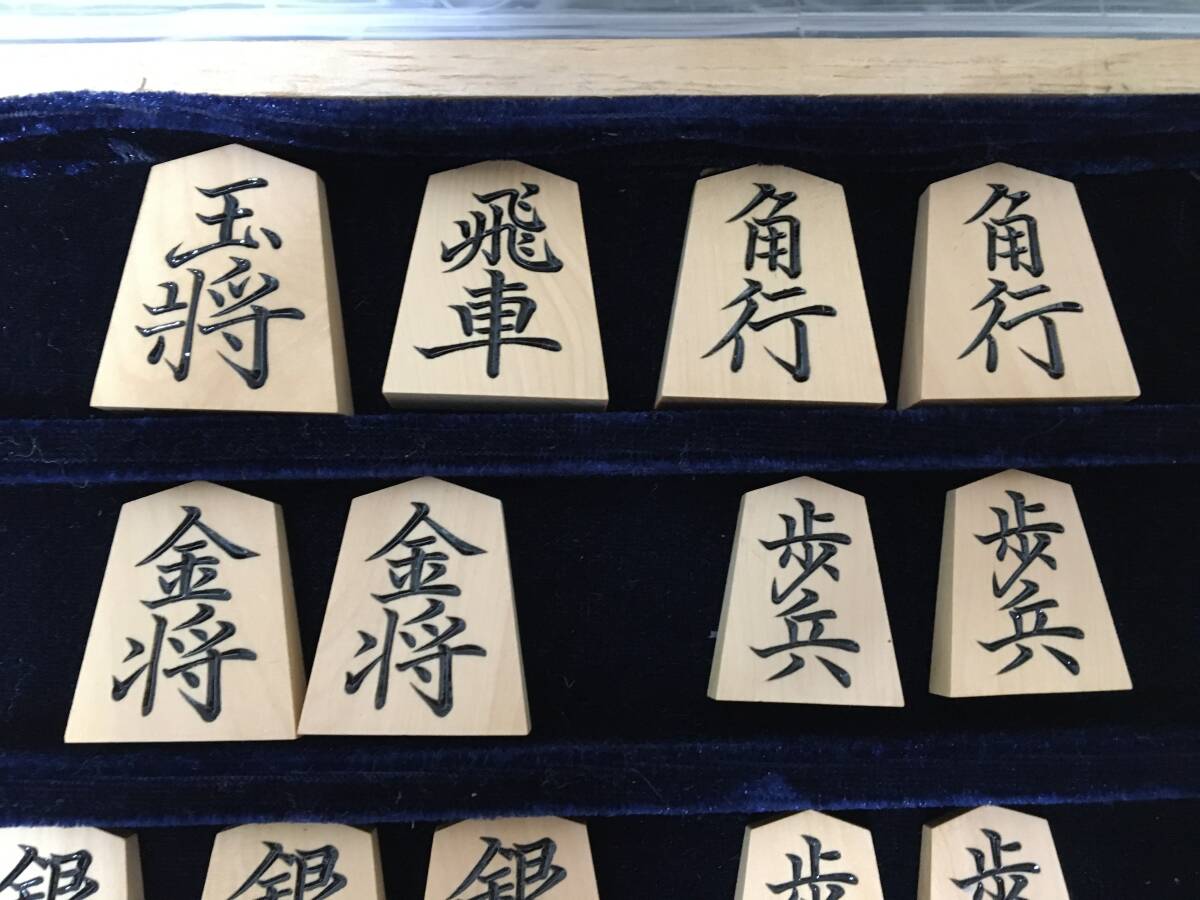 玉将
飛車
角行
角行
金将
金将
歩兵
歩兵
銀
銀
銀
歩
歩